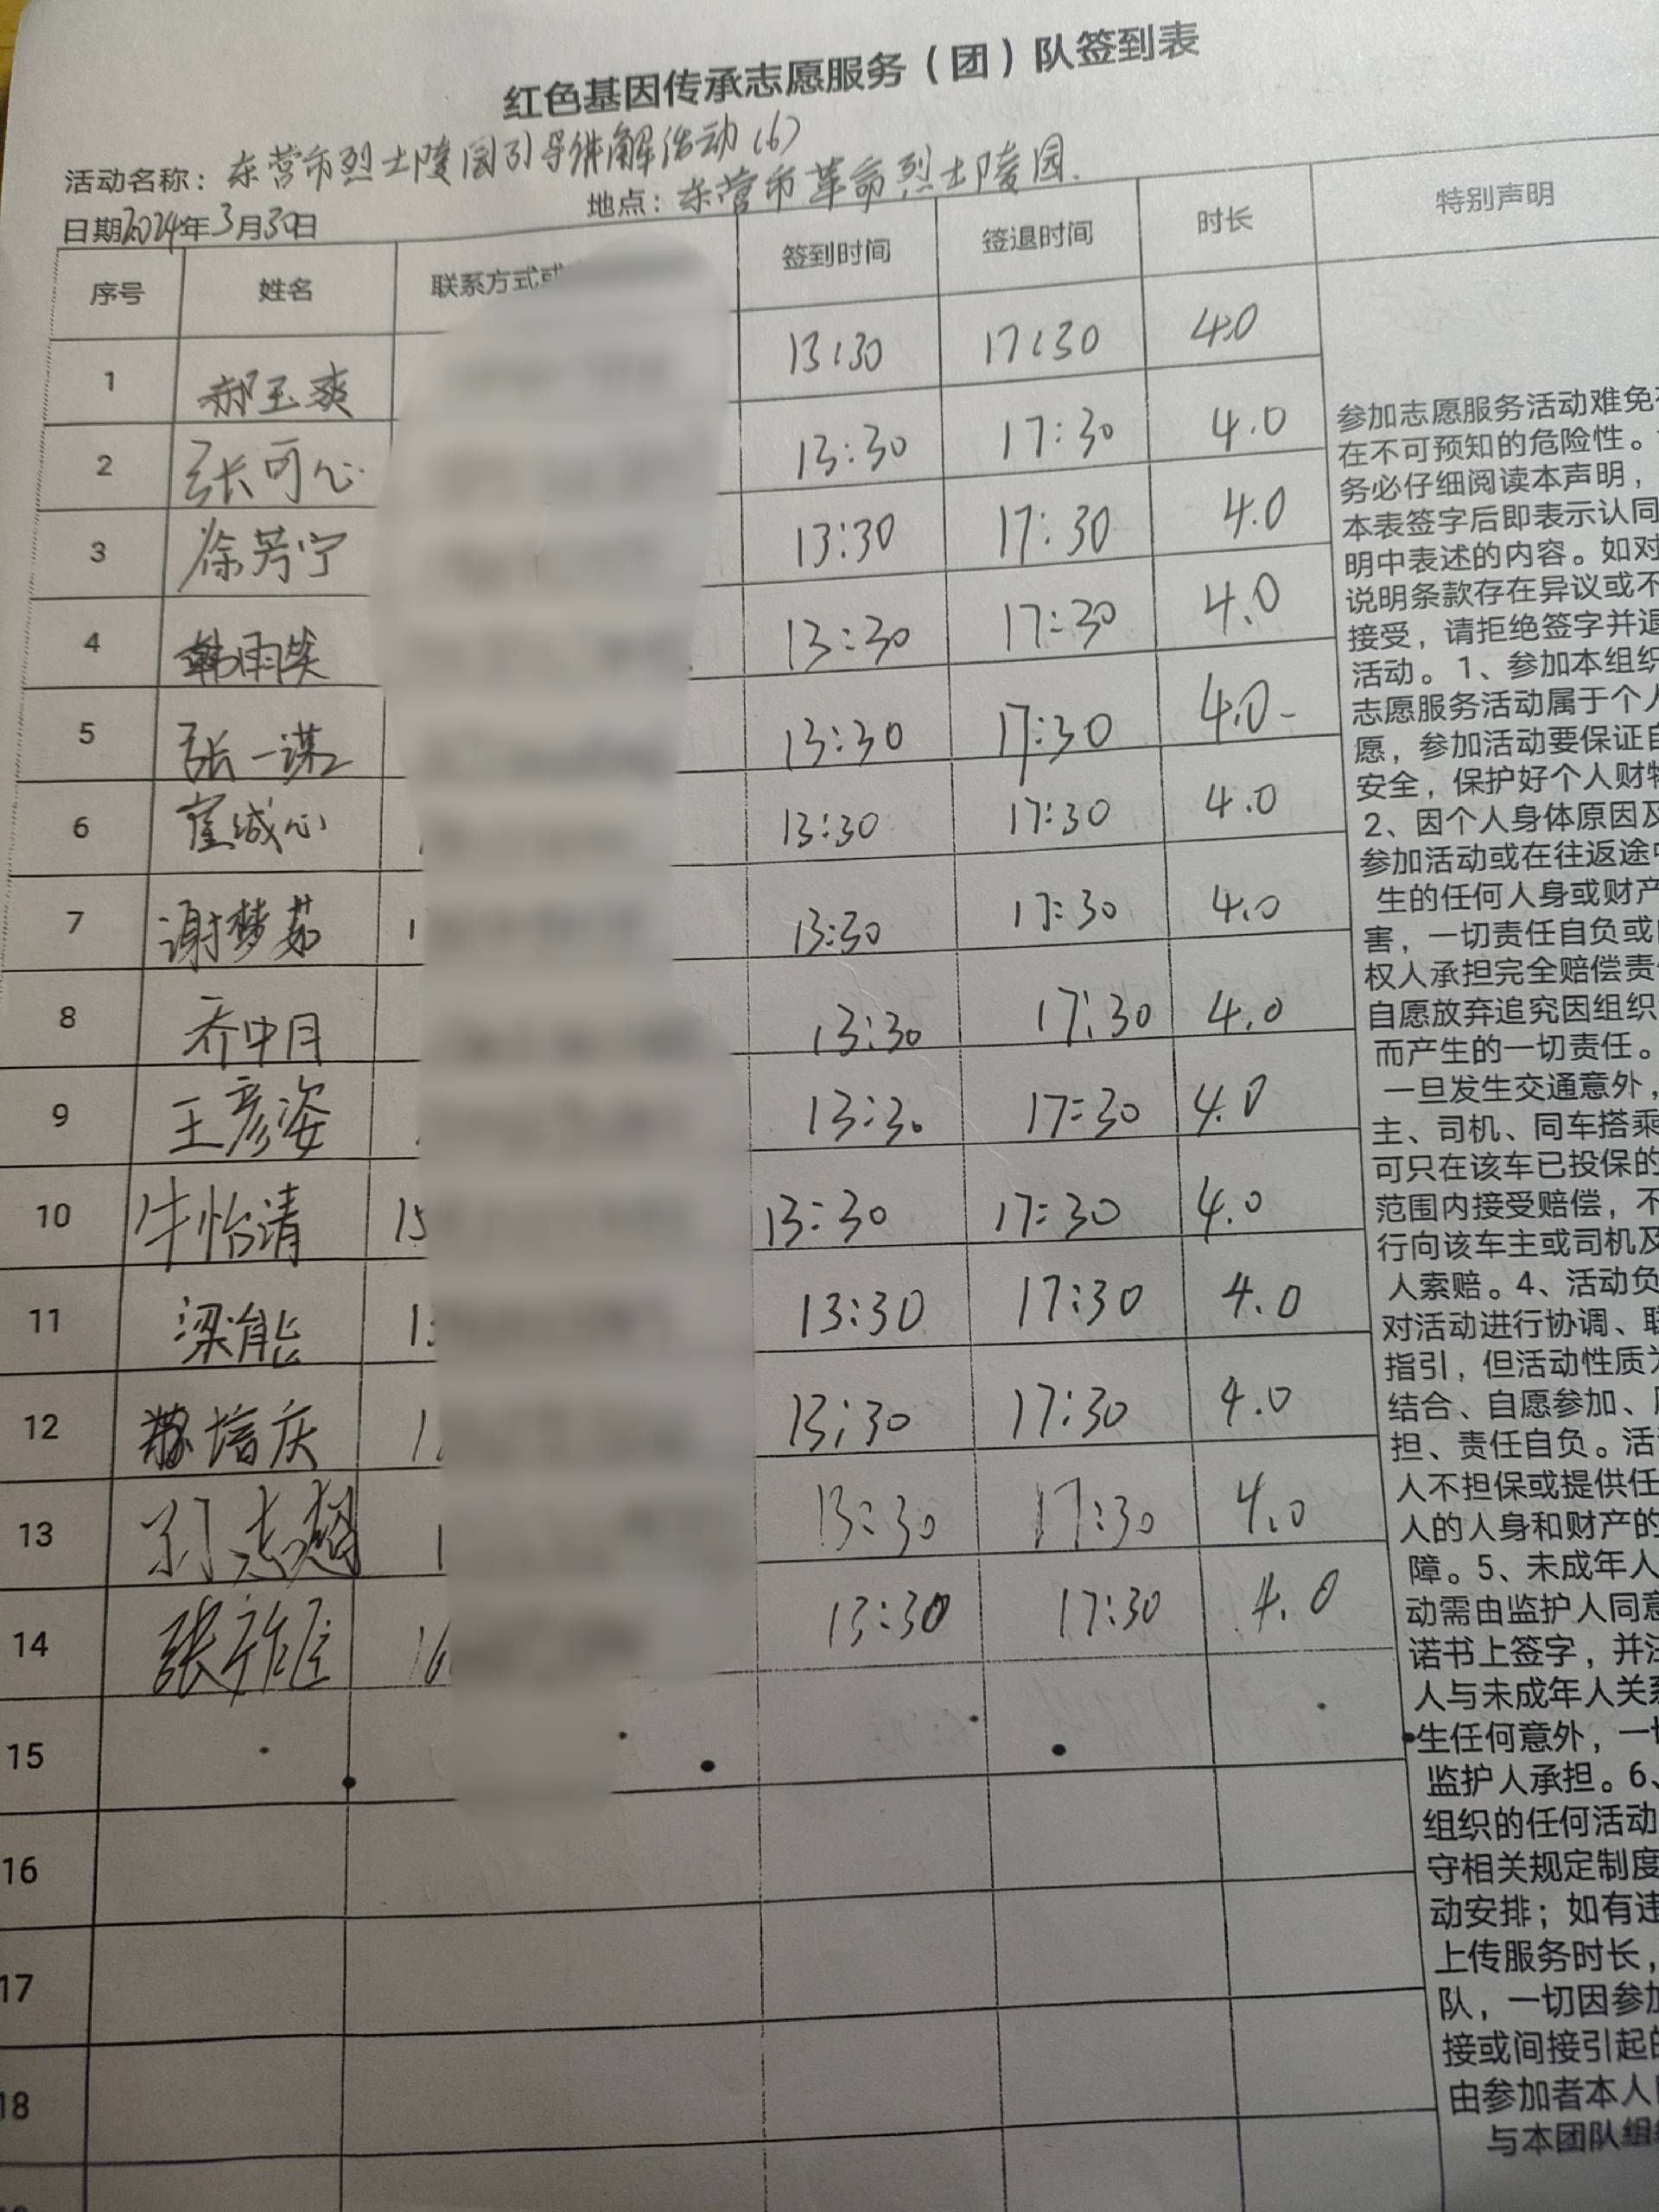 红色基因传承志愿服务（团）队签到表
活动名称：东营市烈士陵园引导讲解活动（6）
日期2024年3月30日 地点：东营市革命烈士陵园.
序号 姓名 联系方式或 签到时间 签退时间 时长 特别声明
1 郝玉爽 13:30 17:30 4.0
2 张可心 13:30 17:30 4.0
3 徐芳宁 13:30 17:30 4.0
4 韩雨 13:30 17:30 4.0
5 张一谋 13:30 17:30 4.0
6 崔诚心 13:30 17:30 4.0
7 谢梦茹 1 13:30 17:30 4.0
8 乔中月 13:30 17:30 4.0
9 王彦姿 13:30 17:30 4.0
10 牛怡清 15 13:30 17:30 4.0
11 梁能 1 13:30 17:30 4.0
12 培庆 1 13:30 17:30 4.0
13 志超 1 13:30 17:30 4.0
14 张 16 13:30 17:30 4.0
15
16
17
18
参加志愿服务活动难免
在不可预知的危险性。
务必仔细阅读本声明，
本表签字后即表示认同
明中表述的内容。如对
说明条款存在异议或不
接受，请拒绝签字并退
活动。1、参加本组织
志愿服务活动属于个人
愿，参加活动要保证自
安全，保护好个人财物
2、因个人身体原因及
参加活动或在往返途中
生的任何人身或财产
害，一切责任自负或由
权人承担完全赔偿责任
自愿放弃追究因组织
而产生的一切责任。
一旦发生交通意外，
主、司机、同车搭乘
可只在该车已投保的
范围内接受赔偿，不
行向该车主或司机及
人索赔。4、活动负
对活动进行协调、联
指引，但活动性质为
结合、自愿参加、
担、责任自负。活
人不担保或提供任
人的人身和财产的
障。5、未成年人
动需由监护人同意
诺书上签字，并注
人与未成年人关系
生任何意外，一切
监护人承担。6、
组织的任何活动
守相关规定制度
动安排；如有违
上传服务时长，
队，一切因参加
接或间接引起的
由参加者本人
与本团队组织